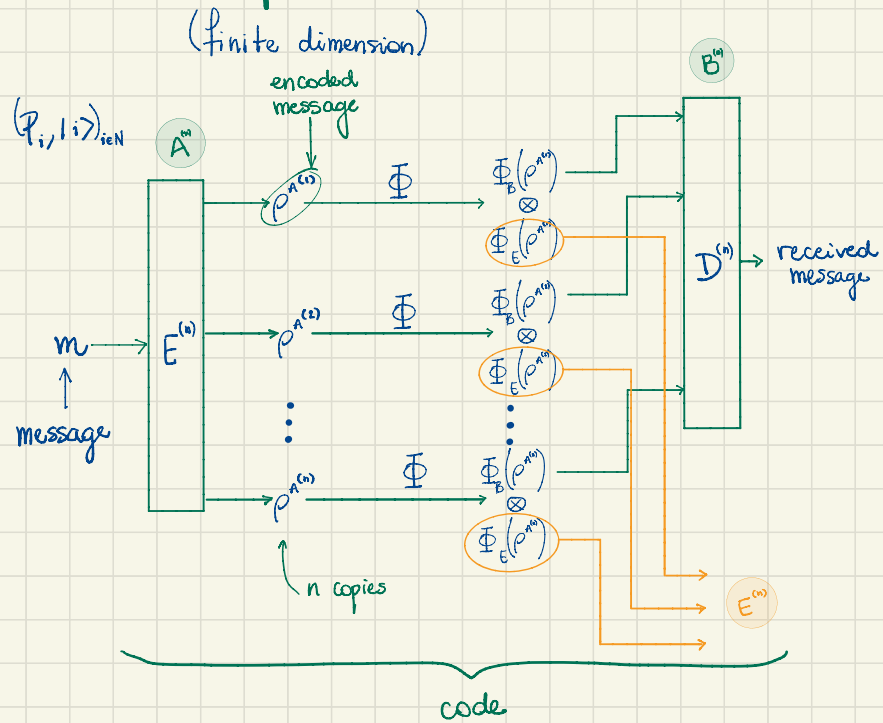 (finite dimension)
encoded
message
(p_i, |i⟩)_{i∈N}
A^{(n)}
B^{(n)}
ρ^{A^{(1)}}
Φ
Φ_B(ρ^{A^{(1)}})
⊗
Φ_E(ρ^{A^{(1)}})
D^{(n)}
received
message
m
E^{(n)}
ρ^{A^{(2)}}
Φ
Φ_B(ρ^{A^{(2)}})
⊗
Φ_E(ρ^{A^{(2)}})
message
ρ^{A^{(n)}}
Φ
Φ_B(ρ^{A^{(n)}})
⊗
Φ_E(ρ^{A^{(n)}})
n copies
E^{(n)}
code